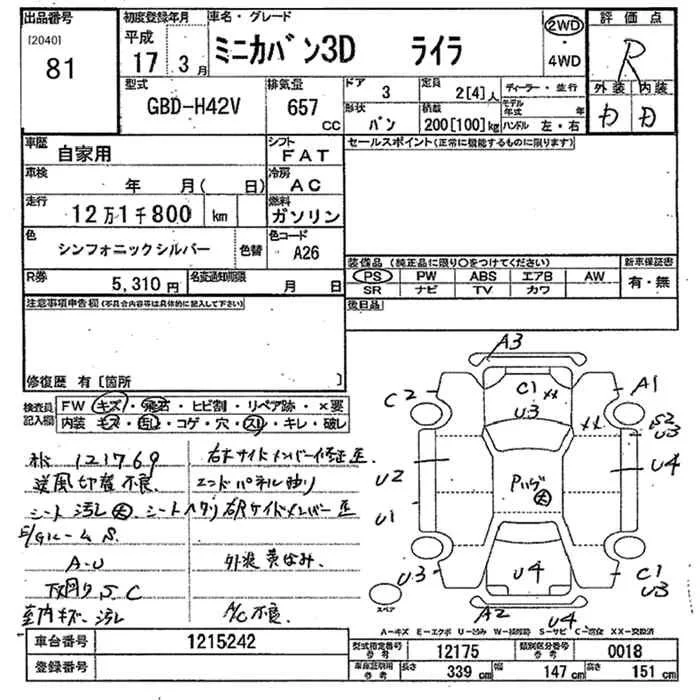 出品番号
[2040]
81
初度登録年月
平成
17 3月
車名・グレード
ミニカバン3D ライラ
2WD
・
4WD
評価点
R
外装 内装
D D
型式
GBD-H42V
排気量
657
CC
ドア
3
定員
2[4]人
ディーラー・並行
形状
バン
積載
200[100]kg
モデル年式 年
ハンドル 左・右
車歴
自家用
シフト
FAT
セールスポイント(正常に機能するものに限ります)
車検
年 月( 日)
冷房
AC
走行
12万1千800 km
燃料
ガソリン
色
シンフォニックシルバー
色替
色コード
A26
装備品(純正品に限り○をつけてください)
新車保証書
PS PW ABS エアB AW
SR ナビ TV カワ
有・無
R券
5,310円
名変通知期限
月 日
後日品
注意事項申告欄(不具合内容等は具体的に記入して下さい)
修復歴 有[箇所 ]
検査員記入欄
FW キズ・飛石・ヒビ割・リペア跡・×要
内装 キズ・汚レ・コゲ・穴・スレ・キレ・破レ
121769
不良
シート 汚レ 大 シート
エンドパネル
E/Gルーム S
A-U
下回り S C
室内キズ 汚レ
外装
A/C 不良
A3
C1
U3
XX
XX
C2
A1
S2
U3
U2
U4
U1
Pハゲ 大
U3
U4
C1
U3
スペア
A2
U4
A-キズ E-エクボ U-凹み W-補修跡 S-サビ C-腐食 XX-交換済
車台番号
1215242
登録番号
型式指定番号
参考
12175
類別区分番号
参考
0018
車庫証明用
参考
長さ
339 cm
幅
147 cm
高さ
151 cm